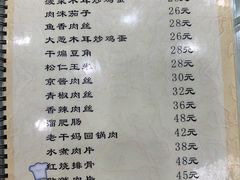 菠菜木耳炒鸡蛋 26元
肉沫茄子 26元
鱼香肉丝 28元
大葱木耳炒鸡蛋 26元
干煸豆角 28元
松仁玉米 28元
京酱肉丝 30元
青椒肉丝 32元
香辣肉丝 36元
溜肥肠 48元
老干妈回锅肉 42元
水煮肉片 38元
红烧排骨 48元
45元